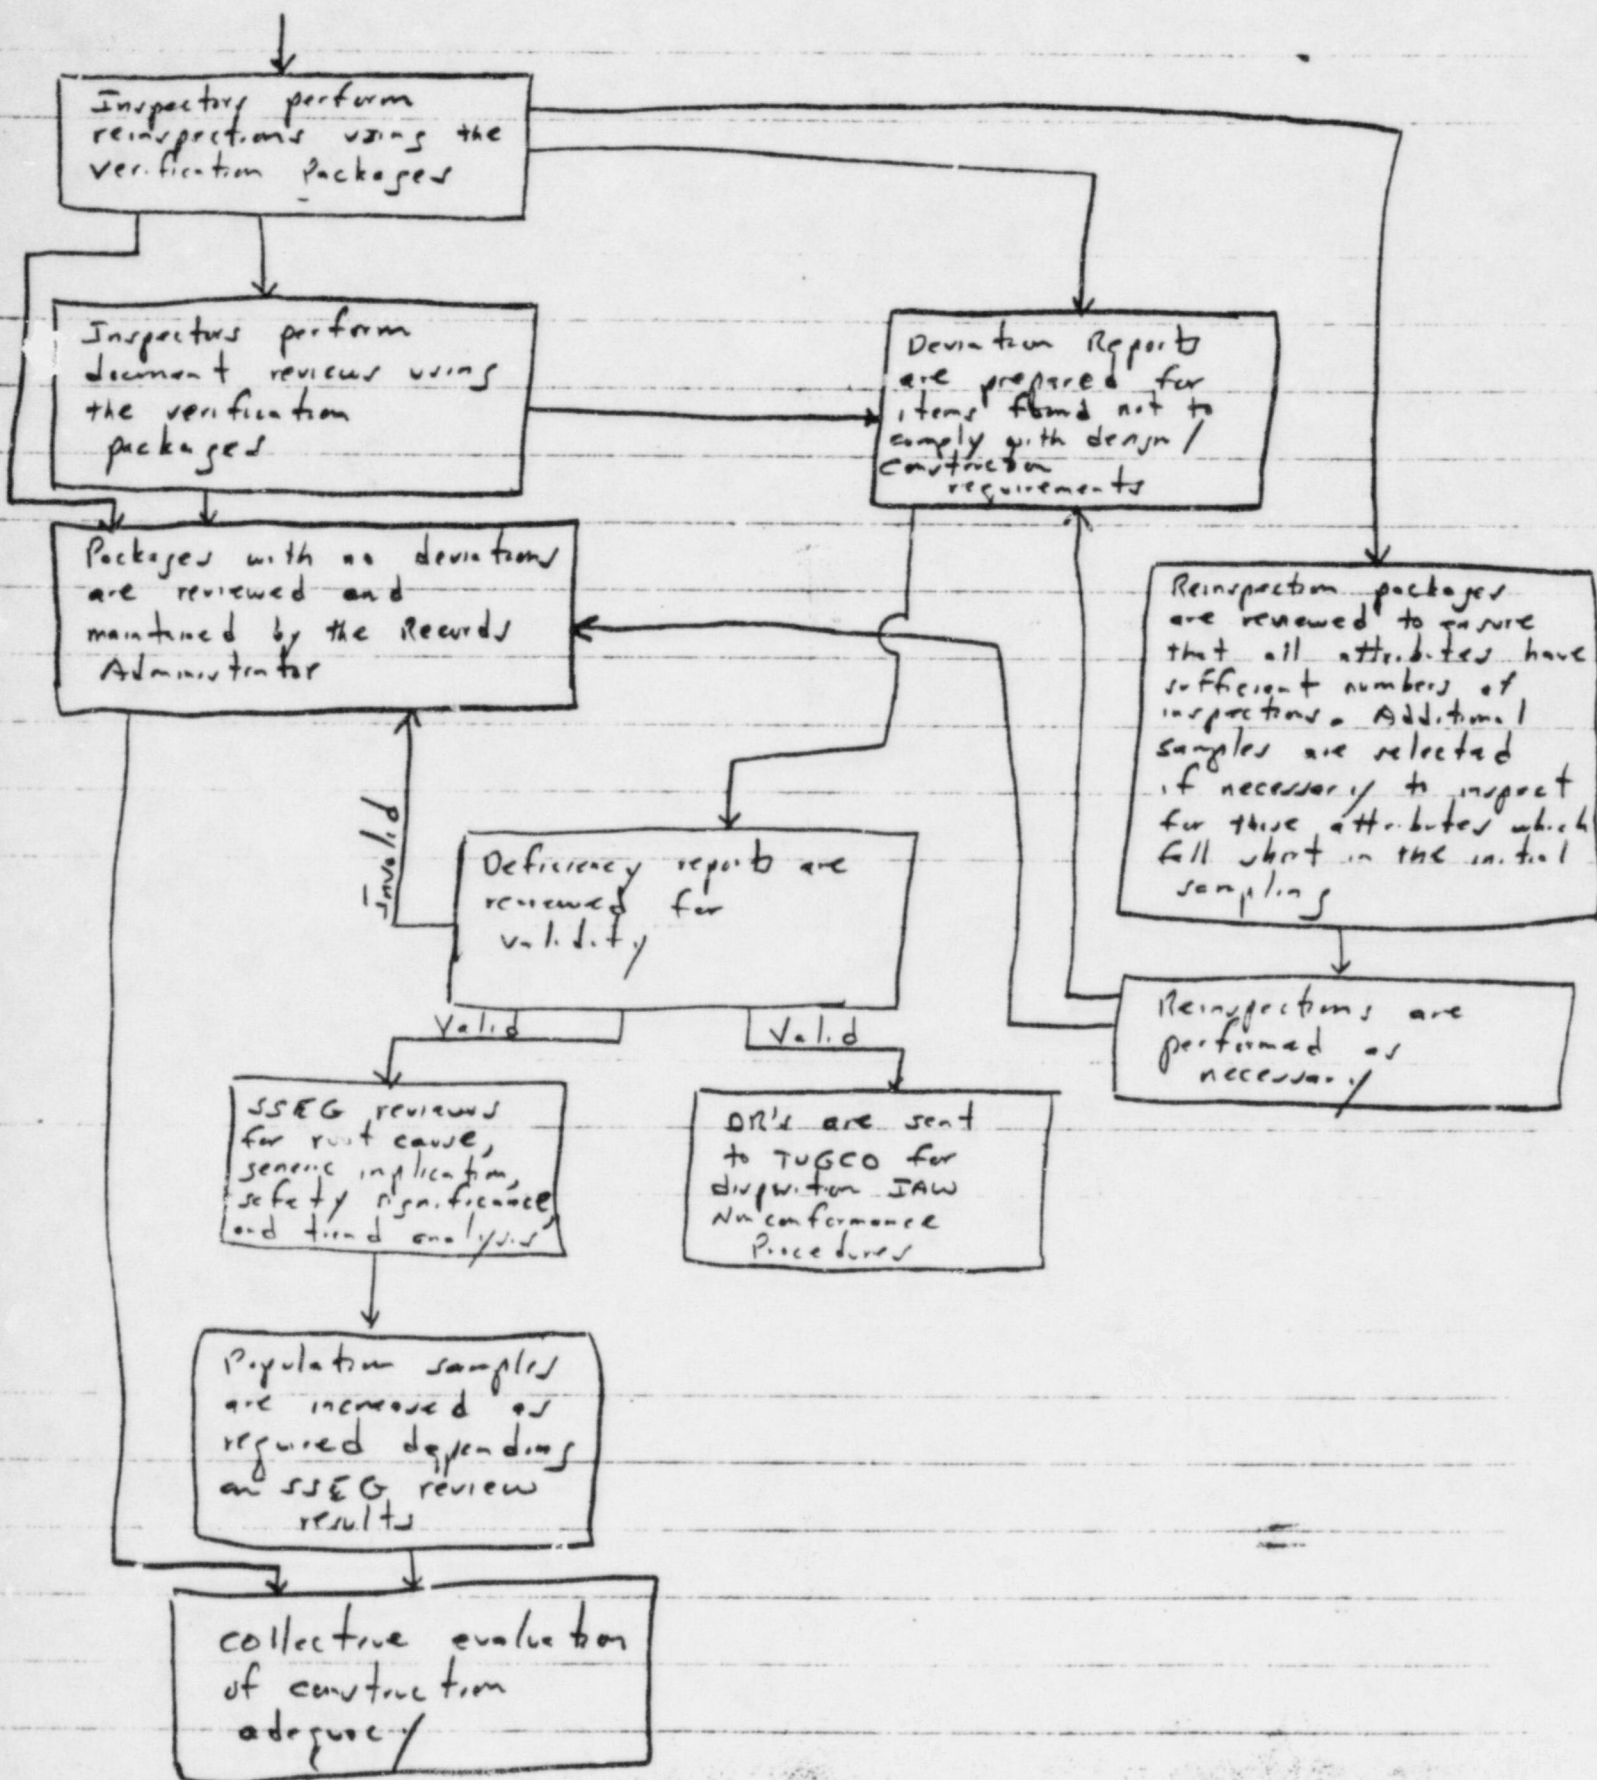 Inspectors perform
reinspections using the
verification Packages
Inspectors perform
document reviews using
the verification
packages
Deviation Reports
are prepared for
items found not to
comply with design/
construction
requirements
Packages with no deviations
are reviewed and
maintained by the Records
Administrator
Reinspection packages
are reviewed to ensure
that all attributes have
sufficient numbers of
inspections. Additional
samples are selected
if necessary to inspect
for those attributes which
fall short in the initial
sampling
Invalid
Deficiency reports are
reviewed for
validity
Reinspections are
performed as
necessary
Valid
Valid
SSEG reviews
for root cause,
generic implication,
safety significance,
and trend analysis
DR's are sent
to TUGCO for
disposition IAW
Nonconformance
Procedures
Population samples
are increased as
required depending
on SSEG review
results
collective evaluation
of construction
adequacy